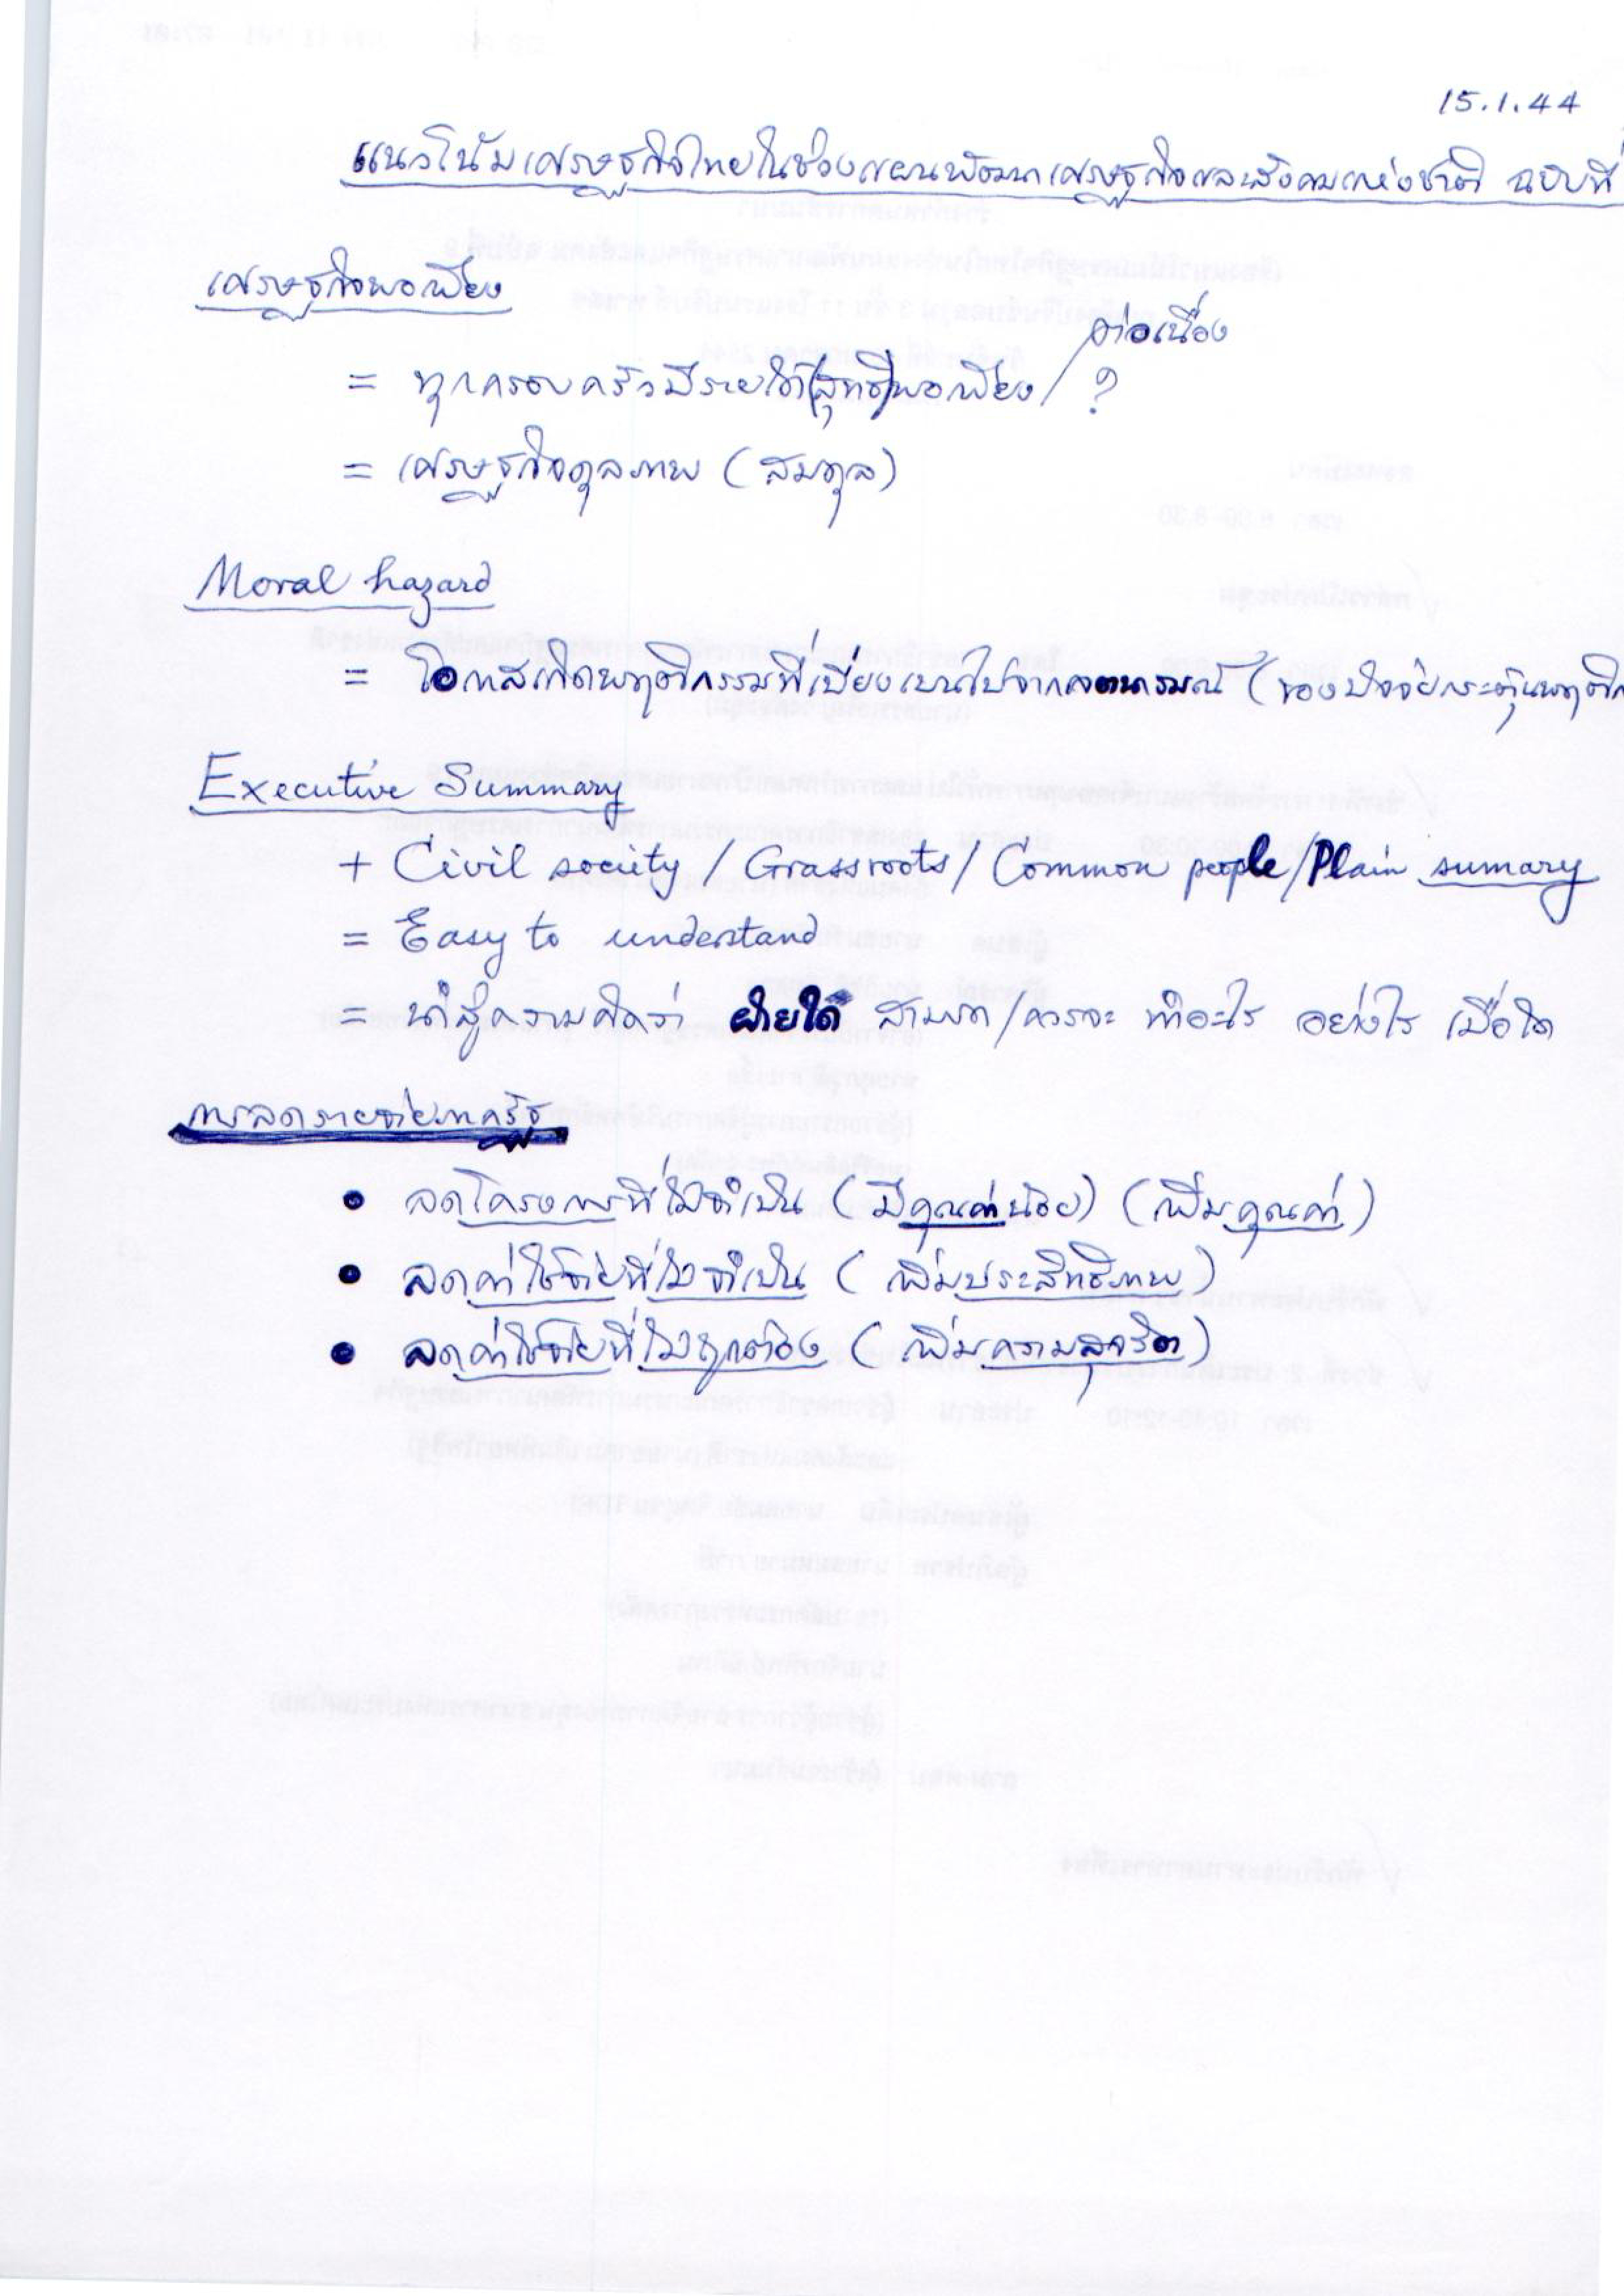 15.1.44
แนวโน้มเศรษฐกิจไทยในช่วงแผนพัฒนาเศรษฐกิจและสังคมแห่งชาติ ฉบับที่
เศรษฐกิจพอเพียง
ต่อเนื่อง
= ทุกครอบครัวมีรายได้(สุทธิ)พอเพียง/ ?
= เศรษฐกิจดุลยภาพ (สมดุล)
Moral hazard
= โอกาสเกิดพฤติกรรมที่เบี่ยงเบนไปจากเจตนารมณ์ (ของปัจจัยกระตุ้นพฤติก
Executive Summary
+ Civil society / Grassroots / Common people/Plain sumary
= Easy to understand
= นำสู่ความคิดว่า ฝ่ายใด สามารถ/ควรจะ ทำอะไร อย่างไร เมื่อใด
การลดรายจ่ายภาครัฐ
• ลดโครงการที่ไม่จำเป็น (มีคุณค่าน้อย) (เพิ่มคุณค่า)
• ลดค่าใช้จ่ายที่ไม่จำเป็น (เพิ่มประสิทธิภาพ)
• ลดค่าใช้จ่ายที่ไม่ถูกต้อง (เพิ่มความสุจริต)